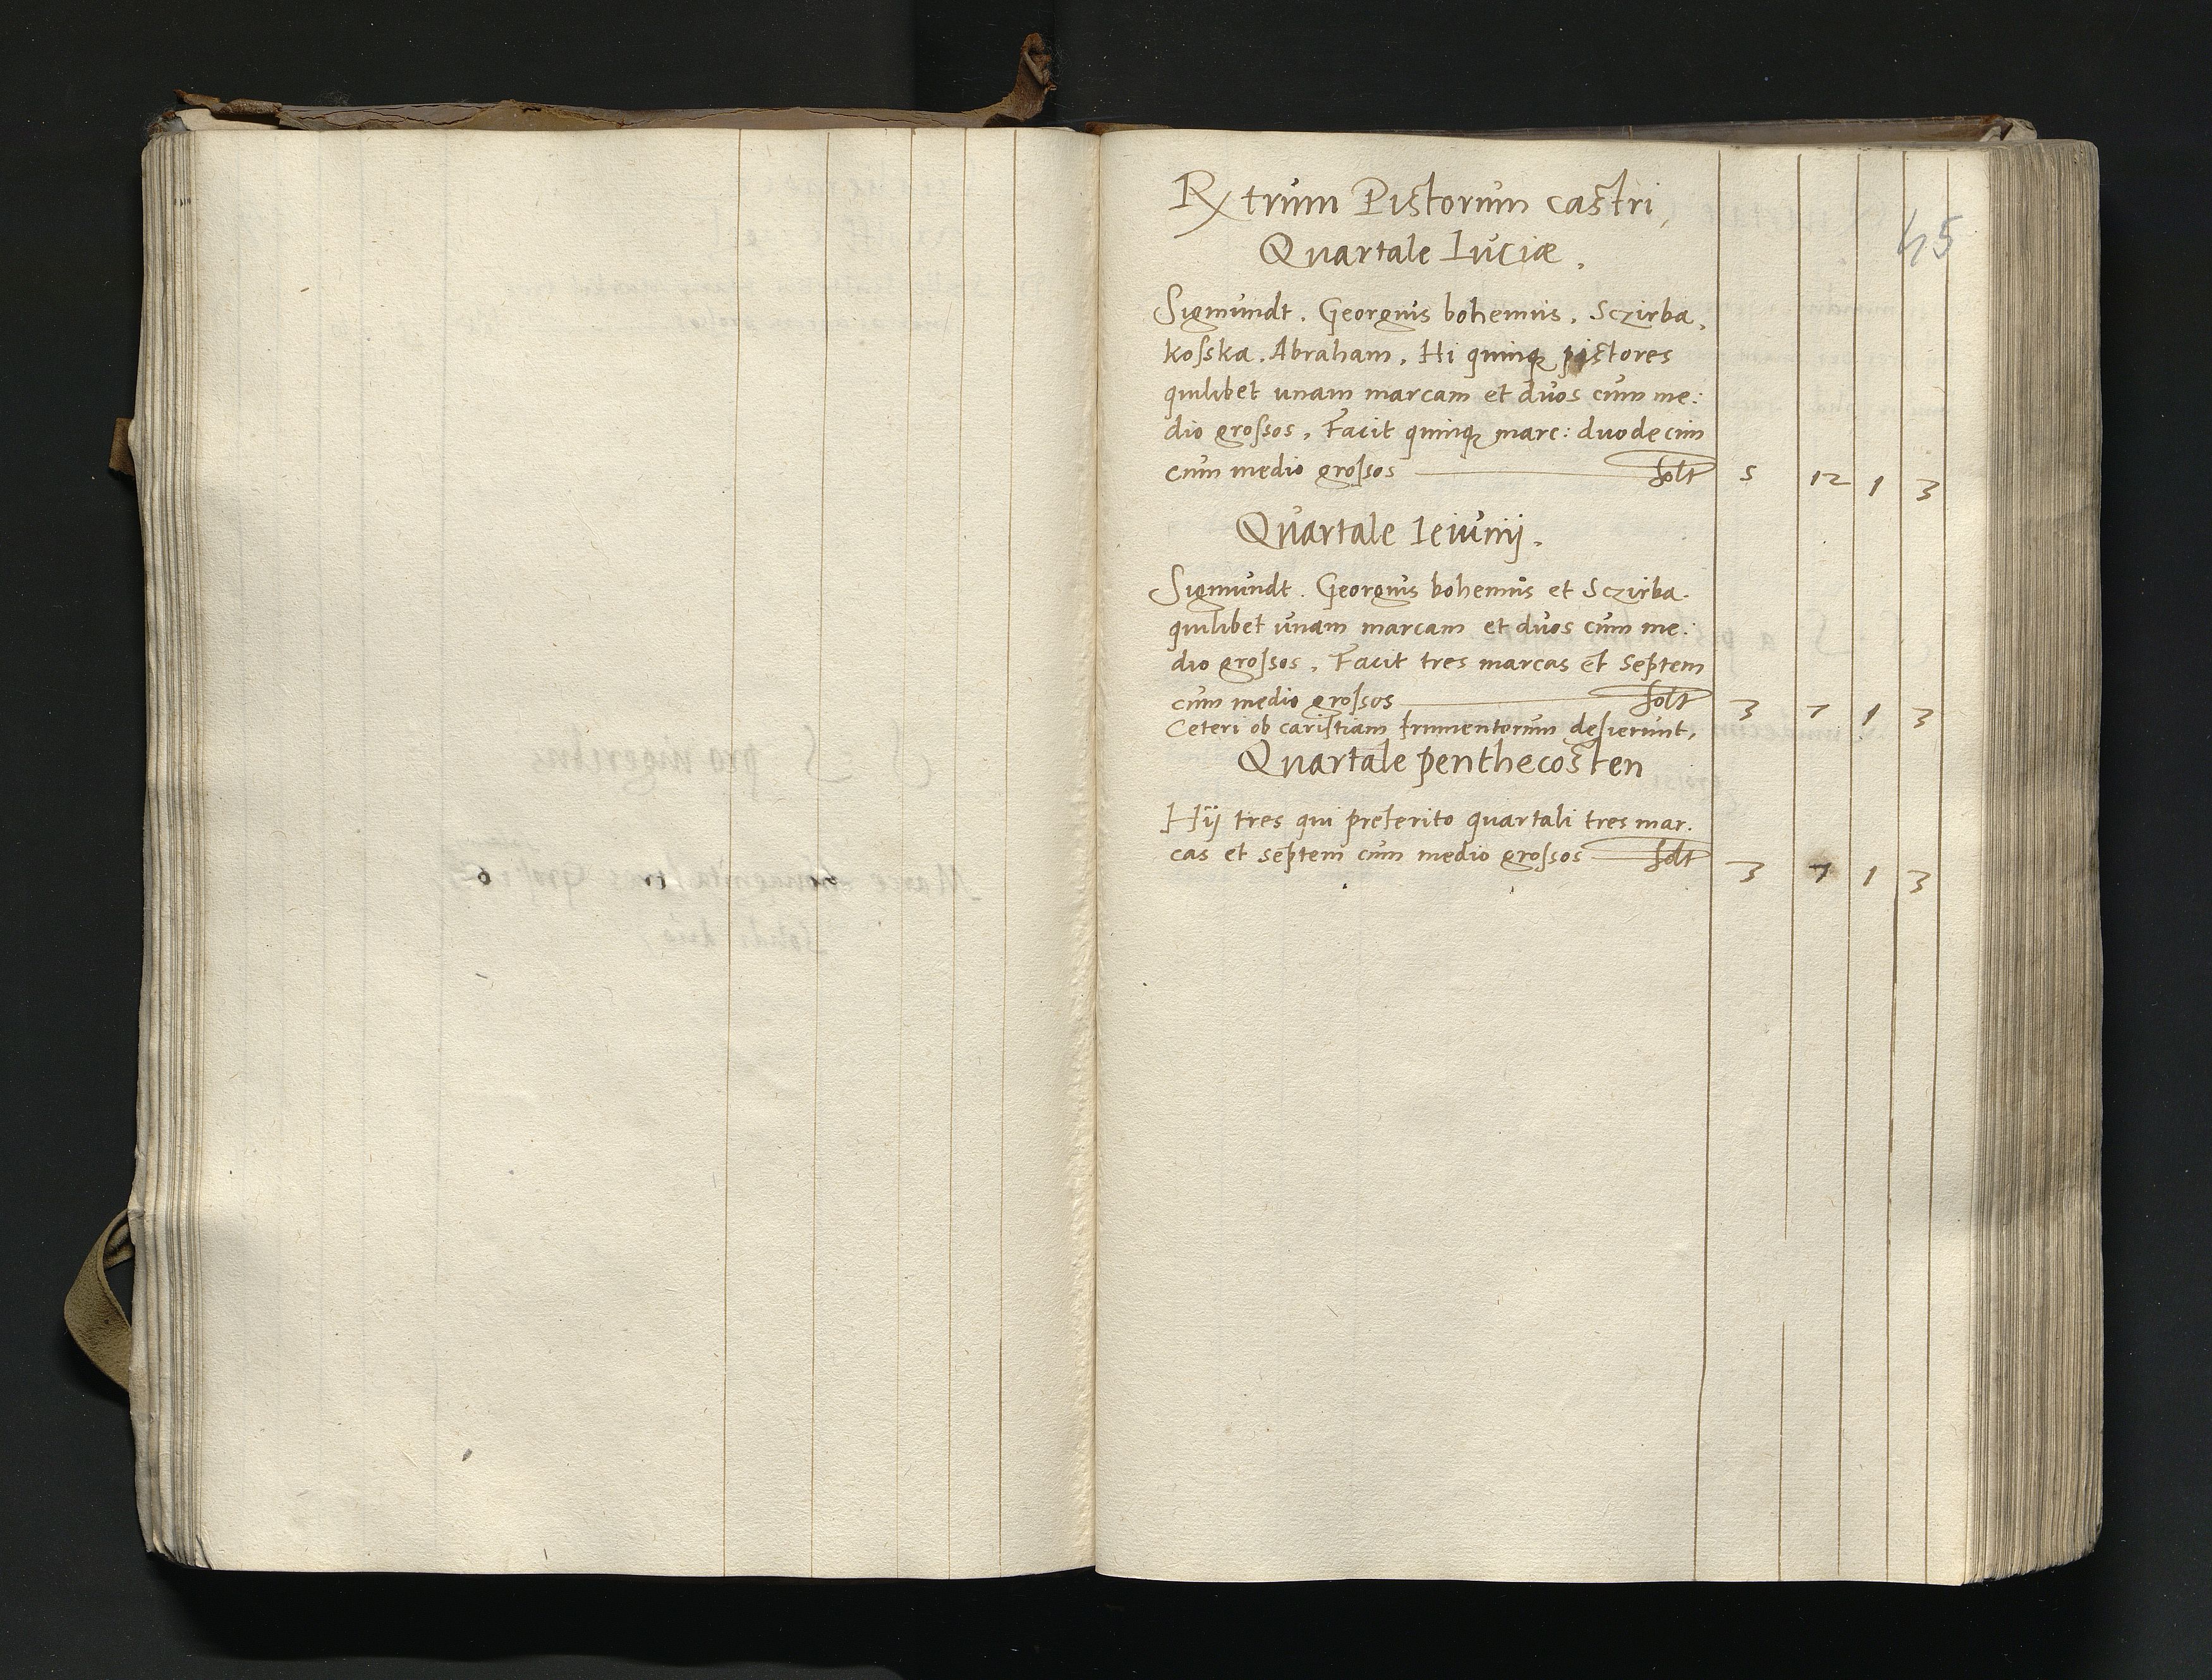 Rx trum Pistorum castri,
45
Quartale Luciæ.
Sigmundt. Georgius bohemus. Sczirba,
kosska. Abraham. Hi quinq pistores
quilibet unam marcam et duos cum me:
dio grossos, Facit quinq marc: duodecim
cum medio grossos solt 5 12 1 3
Quartale Ieiunij.
Sigmundt. Georgius bohemus et Sczirba.
quilibet unam marcam et duos cum me:
dio grossos, Facit tres marcas et septem
cum medio grossos solt 3 7 1 3
Ceteri ob caristiam frumentorum desierunt,
Quartale penthecosten
Hij tres qui preterito quartali tres mar.
cas et septem cum medio grossos solt 3 7 1 3